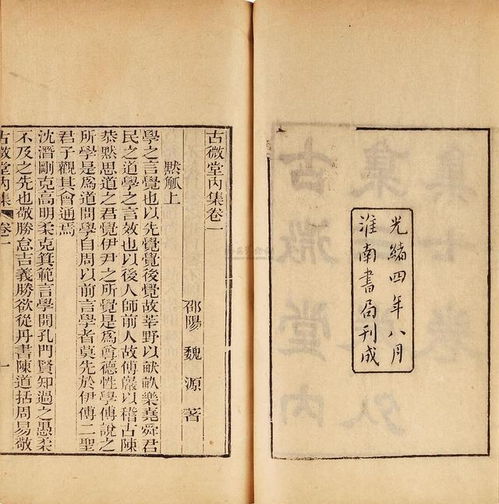 光緒四年八月
淮南書局刊成
古微堂內集卷一
邵陽魏源著
默觚上
學之言覺也以先覺覺後覺故莘野以畎畝樂堯舜君
民之道學之言效也以後人師前人故傅巖以稽古陳
恭默思道之君覺伊尹之所覺是爲尊德性學傅說之
所學是爲道問學自周以前言學者莫先於伊傅二聖
君子觀其會通焉
沈潛剛克高明柔克箕範言學開孔門賢知過之愚柔
不及之先也敬勝怠吉義勝欲從丹書陳道括周易敬
古微堂內集 卷一 一